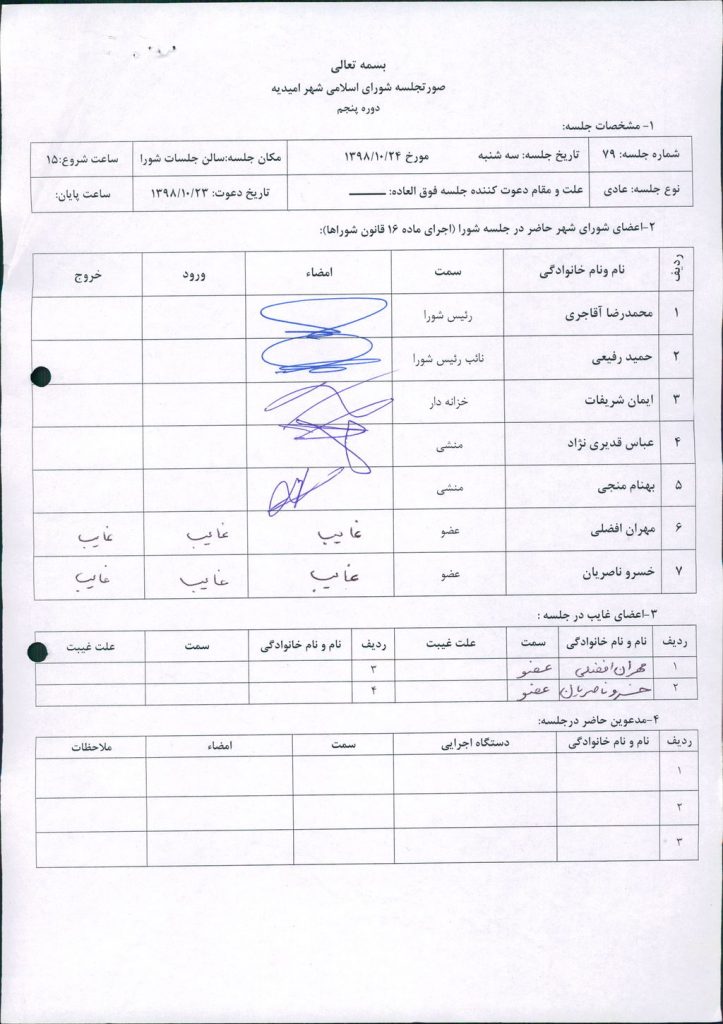 بسمه تعالی
صورتجلسه شورای اسلامی شهر امیدیه
دوره پنجم
۱- مشخصات جلسه:
شماره جلسه: ۷۹ تاریخ جلسه: سه شنبه مورخ ۱۳۹۸/۱۰/۲۴ مکان جلسه:سالن جلسات شورا ساعت شروع:۱۵
نوع جلسه: عادی علت و مقام دعوت کننده جلسه فوق العاده: ــــــــ تاریخ دعوت: ۱۳۹۸/۱۰/۲۳ ساعت پایان:
۲-اعضای شورای شهر حاضر در جلسه شورا (اجرای ماده ۱۶ قانون شوراها):
ردیف نام ونام خانوادگی سمت امضاء ورود خروج
۱ محمدرضا آقاجری رئیس شورا
۲ حمید رفیعی نائب رئیس شورا
۳ ایمان شریفات خزانه دار
۴ عباس قدیری نژاد منشی
۵ بهنام منجی منشی
۶ مهران افضلی عضو غایب غایب غایب
۷ خسرو ناصریان عضو غایب غایب غایب
۳-اعضای غایب در جلسه :
ردیف نام و نام خانوادگی سمت علت غیبت ردیف نام و نام خانوادگی سمت علت غیبت
۱ مهران افضلی عضو ۳
۲ خسرو ناصریان عضو ۴
۴-مدعوین حاضر درجلسه:
ردیف نام و نام خانوادگی دستگاه اجرایی سمت امضاء ملاحظات
۱
۲
۳